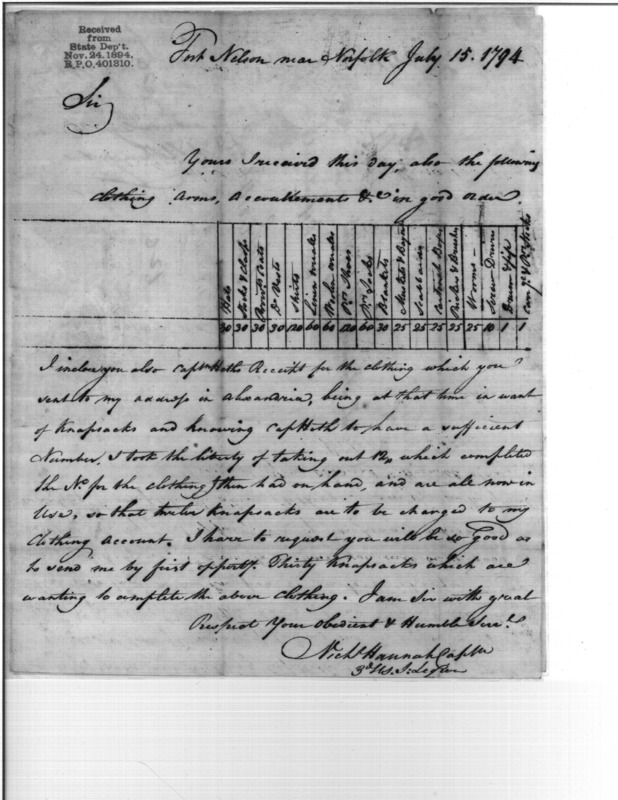 Received
from
State Dep't.
Nov. 24. 1894.
R.P.O. 401310.
Fort Nelson near Norfolk July 15. 1794
Sir
Yours I received this day, also the following
clothing Arms, Accoutrements &c in good order.
Hats Stocks & Clasps Coats Do Vests Shirts Linen overalls Woolen overalls Prs Shoes Pr Socks Blankets Muskets & Bayts Scabbards Cartouch Boxes Pickers & Brushes Worms Screw Drivers Drum & Fife
30 30 30 30 120 60 60 120 60 30 25 25 25 25 25 10 1 1
I inclose you also Captn Heths Receipt for the clothing which you
sent to my address in Alexandria, being at that time in want
of Knapsacks and knowing Cap Heth to have a sufficient
Number, I took the liberty of taking out 12, which completed
the No for the clothing I then had on hand, and are all now in
Use, so that twelve Knapsacks are to be charged to my
Clothing Account. I have to request you will be so Good as
to send me by first opporty. Thirty Knapsacks which are
wanting to complete the above clothing. I am Sir with great
Respect Your Obedient & Humble Servt.
Nichs Hannah Captn
3d U.S. S. Legion